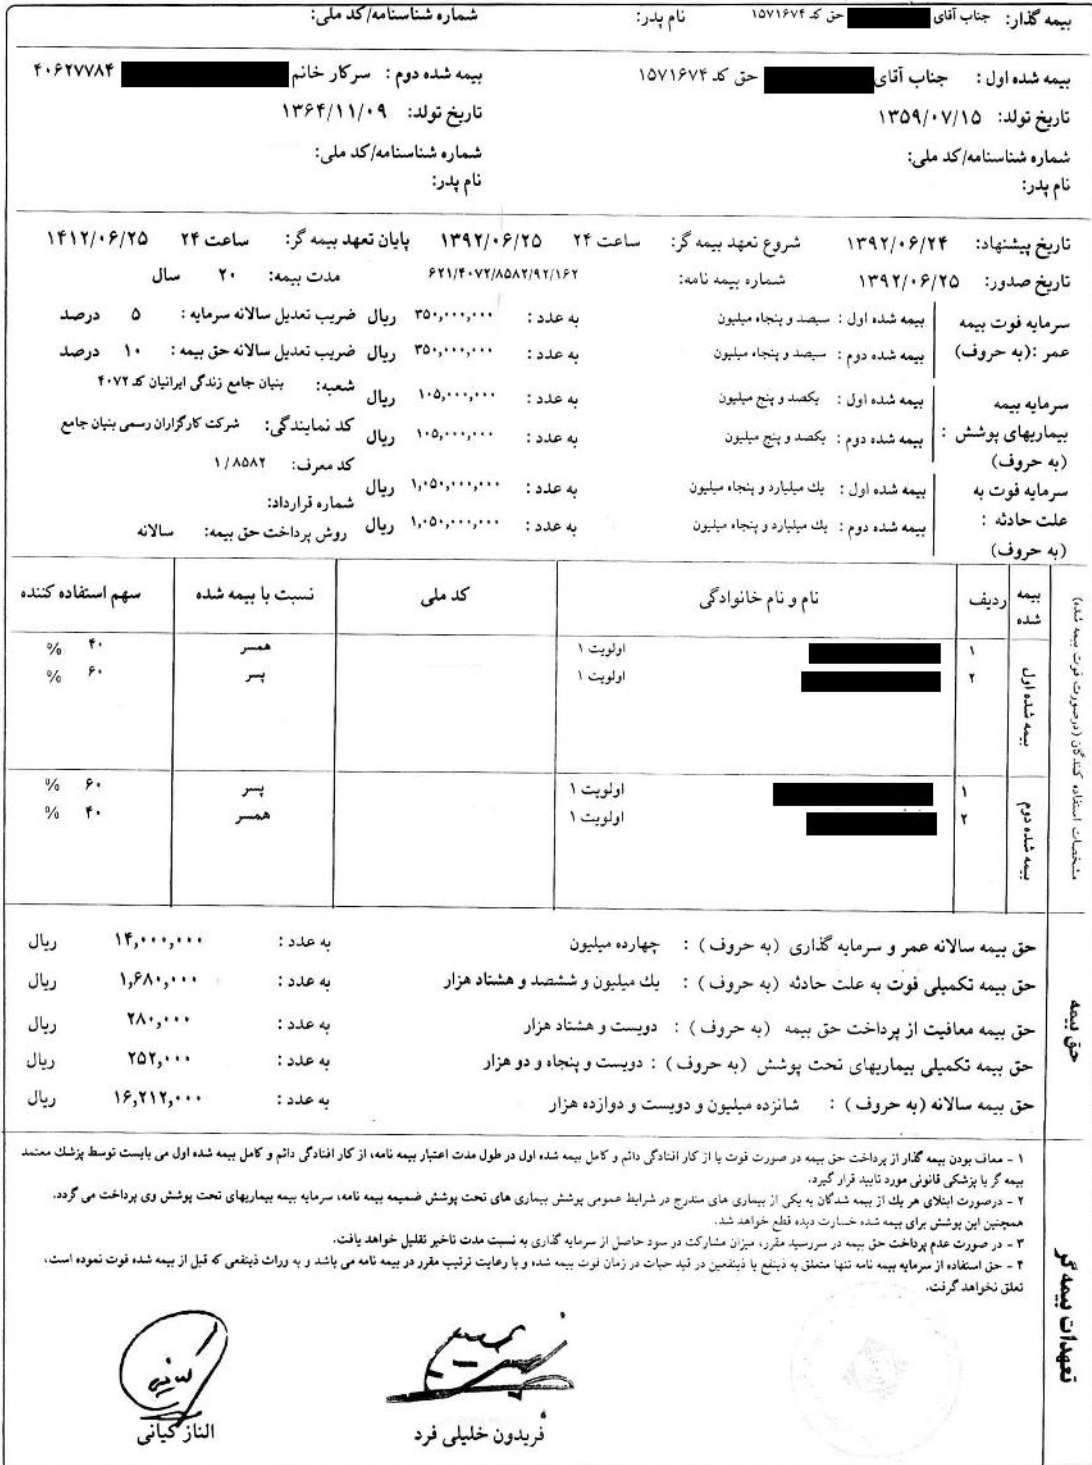 بیمه گذار: جناب آقای حق کد ۱۵۷۱۶۷۴ نام پدر: شماره شناسنامه/کد ملی:
بیمه شده اول : جناب آقای حق کد ۱۵۷۱۶۷۴ بیمه شده دوم : سرکار خانم ۴۰۶۲۷۷۸۴
تاریخ تولد: ۱۳۵۹/۰۷/۱۵ تاریخ تولد: ۱۳۶۴/۱۱/۰۹
شماره شناسنامه/کد ملی: شماره شناسنامه/کد ملی:
نام پدر: نام پدر:
تاریخ پیشنهاد: ۱۳۹۲/۰۶/۲۴ شروع تعهد بیمه گر: ساعت ۲۴ ۱۳۹۲/۰۶/۲۵ پایان تعهد بیمه گر: ساعت ۲۴ ۱۴۱۲/۰۶/۲۵
تاریخ صدور: ۱۳۹۲/۰۶/۲۵ شماره بیمه نامه: ۶۲۱/۴۰۷۲/۸۵۸۲/۹۲/۱۶۲ مدت بیمه: ۲۰ سال
سرمایه فوت بیمه بیمه شده اول : سیصد و پنجاه میلیون به عدد : ۳۵۰,۰۰۰,۰۰۰ ریال ضریب تعدیل سالانه سرمایه : ۵ درصد
عمر :(به حروف) بیمه شده دوم : سیصد و پنجاه میلیون به عدد : ۳۵۰,۰۰۰,۰۰۰ ریال ضریب تعدیل سالانه حق بیمه : ۱۰ درصد
سرمایه بیمه بیمه شده اول : یکصد و پنج میلیون به عدد : ۱۰۵,۰۰۰,۰۰۰ ریال شعبه: بنیان جامع زندگی ایرانیان کد ۴۰۷۲
بیماریهای پوشش : بیمه شده دوم : یکصد و پنج میلیون به عدد : ۱۰۵,۰۰۰,۰۰۰ ریال کد نمایندگی: شرکت کارگزاران رسمی بنیان جامع
(به حروف) کد معرف: ۱/۸۵۸۲
سرمایه فوت به بیمه شده اول : یك میلیارد و پنجاه میلیون به عدد : ۱,۰۵۰,۰۰۰,۰۰۰ ریال شماره قرارداد:
علت حادثه : بیمه شده دوم : یك میلیارد و پنجاه میلیون به عدد : ۱,۰۵۰,۰۰۰,۰۰۰ ریال روش پرداخت حق بیمه: سالانه
(به حروف)
مشخصات استفاده کنندگان (درصورت فوت بیمه شده)
بیمه شده ردیف نام و نام خانوادگی کد ملی نسبت با بیمه شده سهم استفاده کننده
بیمه شده اول
۱ اولویت ۱ همسر ۴۰ %
۲ اولویت ۱ پسر ۶۰ %
بیمه شده دوم
۱ اولویت ۱ پسر ۶۰ %
۲ اولویت ۱ همسر ۴۰ %
حق بیمه
حق بیمه سالانه عمر و سرمایه گذاری (به حروف) : چهارده میلیون به عدد : ۱۴,۰۰۰,۰۰۰ ریال
حق بیمه تکمیلی فوت به علت حادثه (به حروف) : یك میلیون و ششصد و هشتاد هزار به عدد : ۱,۶۸۰,۰۰۰ ریال
حق بیمه معافیت از پرداخت حق بیمه (به حروف) : دویست و هشتاد هزار به عدد : ۲۸۰,۰۰۰ ریال
حق بیمه تکمیلی بیماریهای تحت پوشش (به حروف) : دویست و پنجاه و دو هزار به عدد : ۲۵۲,۰۰۰ ریال
حق بیمه سالانه (به حروف) : شانزده میلیون و دویست و دوازده هزار به عدد : ۱۶,۲۱۲,۰۰۰ ریال
تعهدات بیمه گر
۱ - معاف بودن بیمه گذار از پرداخت حق بیمه در صورت فوت یا از کار افتادگی دائم و کامل بیمه شده اول در طول مدت اعتبار بیمه نامه، از کار افتادگی دائم و کامل بیمه شده اول می بایست توسط پزشك معتمد
بیمه گر یا پزشکی قانونی مورد تایید قرار گیرد.
۲ - درصورت ابتلای هر یك از بیمه شدگان به یکی از بیماری های مندرج در شرایط عمومی پوشش بیماری های تحت پوشش ضمیمه بیمه نامه، سرمایه بیمه بیماریهای تحت پوشش وی پرداخت می گردد.
همچنین این پوشش برای بیمه شده خسارت دیده قطع خواهد شد.
۳ - در صورت عدم پرداخت حق بیمه در سررسید مقرر، میزان مشارکت در سود حاصل از سرمایه گذاری به نسبت مدت تاخیر تقلیل خواهد یافت.
۴ - حق استفاده از سرمایه بیمه نامه تنها متعلق به ذینفع یا ذینفعین در قید حیات در زمان فوت بیمه شده و با رعایت ترتیب مقرر در بیمه نامه می باشد و به وراث ذینفعی که قبل از بیمه شده فوت نموده است،
تعلق نخواهد گرفت.
فریدون خلیلی فرد الناز کیانی